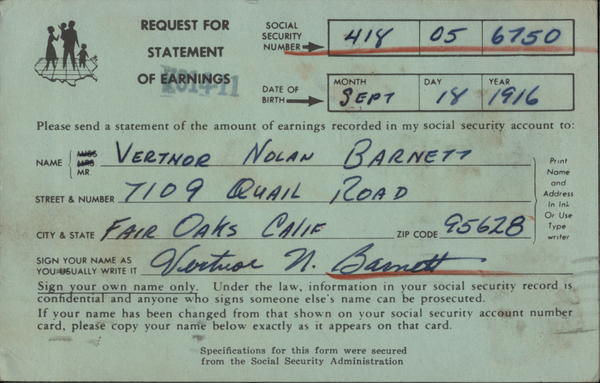 REQUEST FOR
STATEMENT
OF EARNINGS
SOCIAL
SECURITY
NUMBER
418 05 6750
DATE OF
BIRTH
MONTH DAY YEAR
SEPT 18 1916
Please send a statement of the amount of earnings recorded in my social security account to:
NAME
MISS
MRS
MR
VERTNOR NOLAN BARNETT
STREET & NUMBER 7109 QUAIL ROAD
CITY & STATE FAIR OAKS CALIF ZIP CODE 95628
Print
Name
and
Address
In Ink
Or Use
Type
writer
SIGN YOUR NAME AS
YOU USUALLY WRITE IT
Vertnor N. Barnett
Sign your own name only. Under the law, information in your social security record is
confidential and anyone who signs someone else's name can be prosecuted.
If your name has been changed from that shown on your social security account number
card, please copy your name below exactly as it appears on that card.
Specifications for this form were secured
from the Social Security Administration